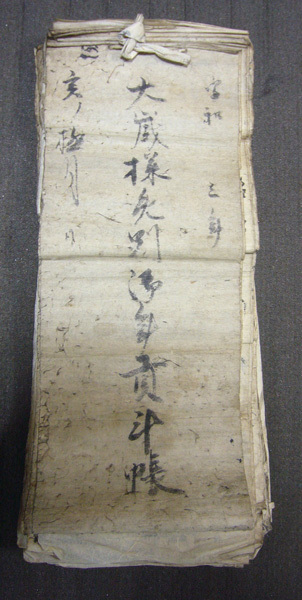 享和三年
大蔵様免別御年貢斗帳
亥ノ極月日